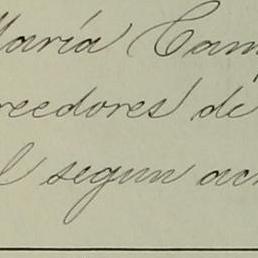 María Cam
reedores de
l segun ac